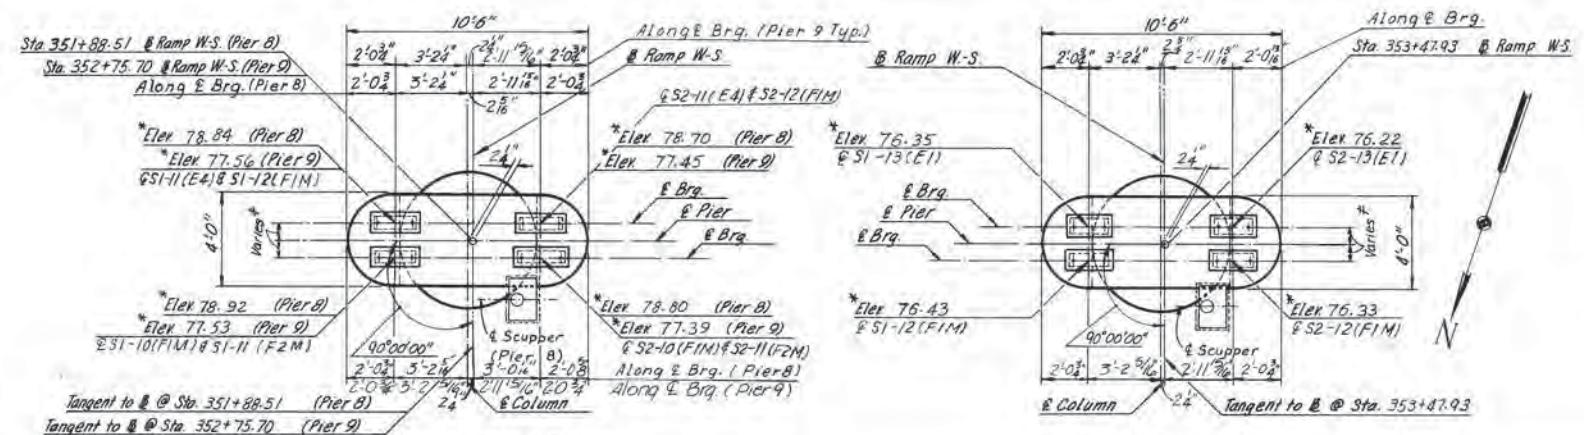 10'-6"
Sta. 351+88.51 ℄ Ramp W-S. (Pier 8)
Sta. 352+75.70 ℄ Ramp W-S. (Pier 9)
Along ℄ Brg. (Pier 8)
2'-0¾" 3'-2¼" 2¼" 2'-11 15/16" 2'-0¾"
2'-0¾ 3'-2¼" 2'-11 15/16" 2'-0¾
2 5/16"
Along ℄ Brg. (Pier 9 Typ.)
B Ramp W-S.
℄ S2-11(E4) & S2-12(F1M)
*Elev. 78.84 (Pier 8)
*Elev. 77.56 (Pier 9)
℄ S1-11(E4) & S1-12(F1M)
*Elev. 78.70 (Pier 8)
*Elev. 77.45 (Pier 9)
2¼"
℄ Brg.
℄ Pier
℄ Brg.
4'-0"
Varies *
*Elev. 78.92 (Pier 8)
*Elev. 77.53 (Pier 9)
℄ S1-10(F1M) & S1-11 (F2M)
*Elev. 78.80 (Pier 8)
*Elev. 77.39 (Pier 9)
℄ S2-10(F1M) & S2-11(F2M)
90°00'00"
℄ Scupper
(Pier 8)
2'-0¾" 3'-2 5/16" 3'-0 2'-0⅝" Along ℄ Brg. (Pier 8)
2'-0¾" 3'-2 5/16" 2'-11 15/16" 2'-0¾" Along ℄ Brg. (Pier 9)
2¼"
℄ Column
Tangent to B @ Sta. 351+88.51 (Pier 8)
Tangent to B @ Sta. 352+75.70 (Pier 9)
10'-6"
Along ℄ Brg.
Sta. 353+47.93 B Ramp W-S.
B Ramp W.-S.
2'-0¾" 3'-2¼" 2'-11 15/16"
*Elev. 76.35
℄ S1-13(E1)
*Elev. 76.22
℄ S2-13(E1)
2¼"
℄ Brg.
℄ Pier
℄ Brg.
Varies *
4'-0"
*Elev. 76.43
℄ S1-12(F1M)
*Elev. 76.33
℄ S2-12(F1M)
90°00'00"
℄ Scupper
2'-0¾" 3'-2 5/16" 2'-11 15/16" 2'-0¾"
2¼"
℄ Column
Tangent to B @ Sta. 353+47.93
N